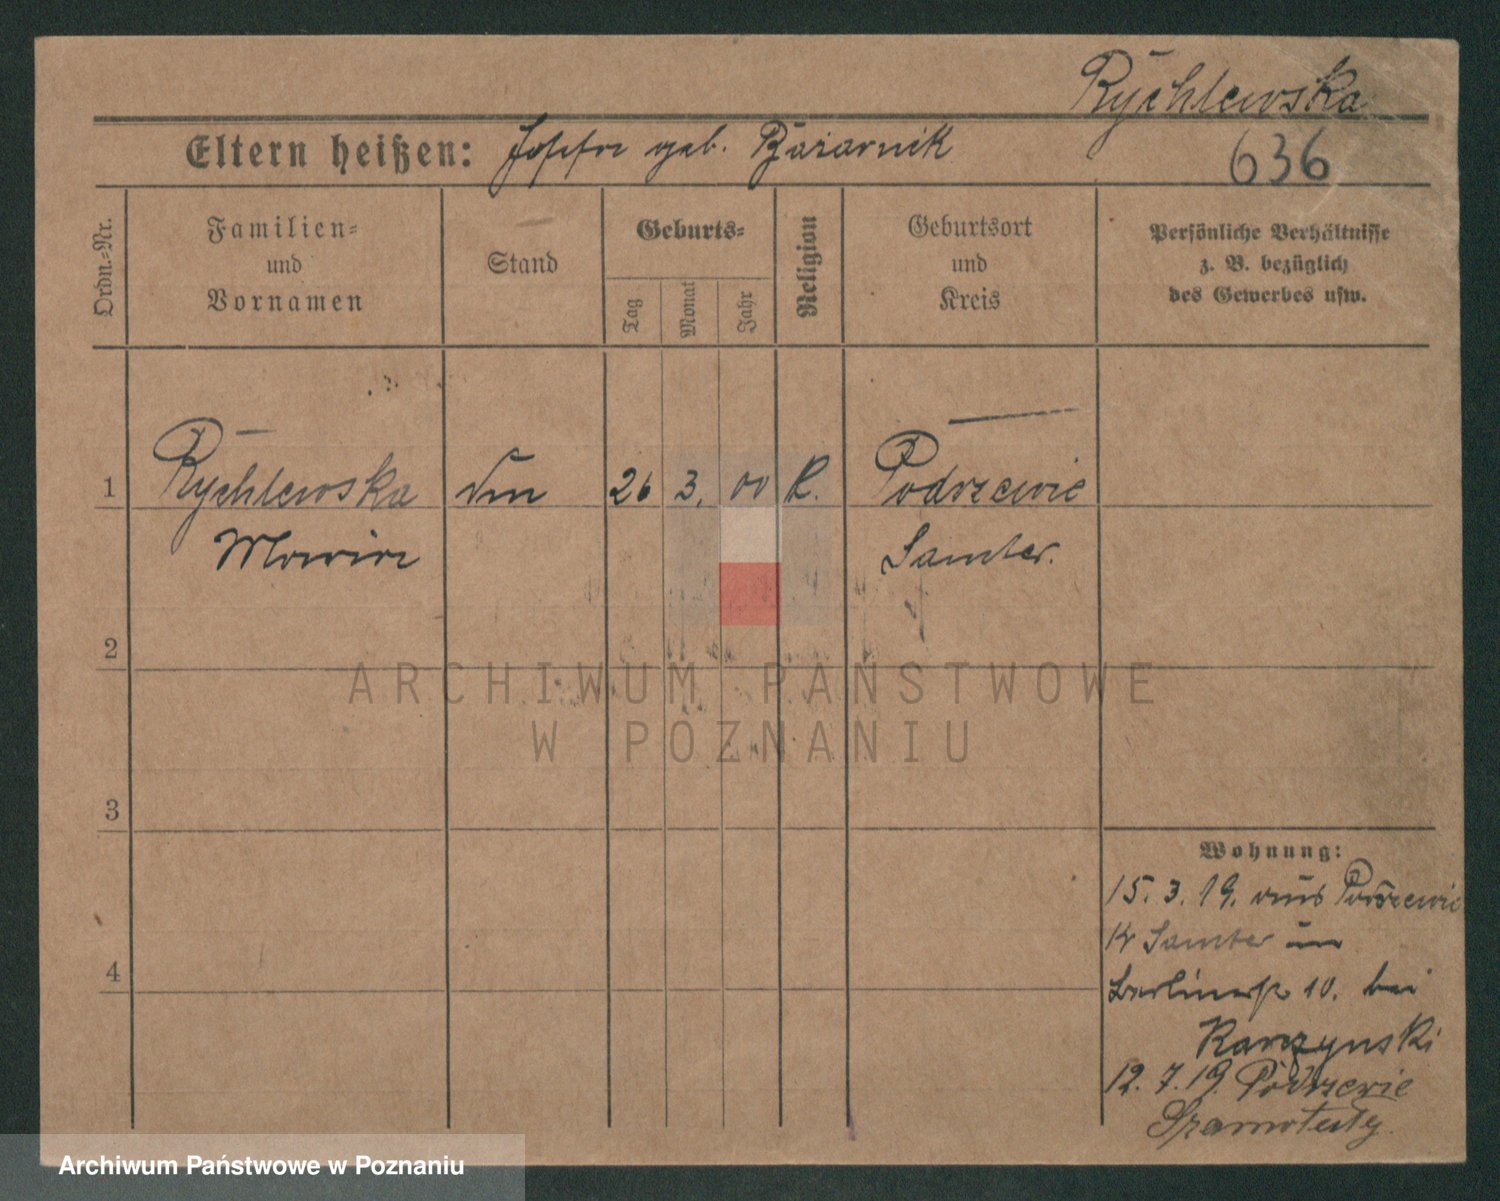 Rychlewska
Eltern heißen: Josefa geb.
636
Ordn.-Nr.
Familien-
und
Vornamen
Stand
Geburts-
Tag
Monat
Jahr
Religion
Geburtsort
und
Kreis
Persönliche Verhältnisse
z. B. bezüglich
des Gewerbes usw.
1 Rychlewska 26 3. 00 K. Podrzewie
Maria Samter.
2
ARCHIWUM PAŃSTWOWE
W POZNANIU
3
Wohnung:
15. 3. 19. aus Podrzewie
Kr Samter in
4
Berlinerstr 10. bei
Karczynski
12. 7. 19. Podrzewie
Szamotuły
Archiwum Państwowe w Poznaniu